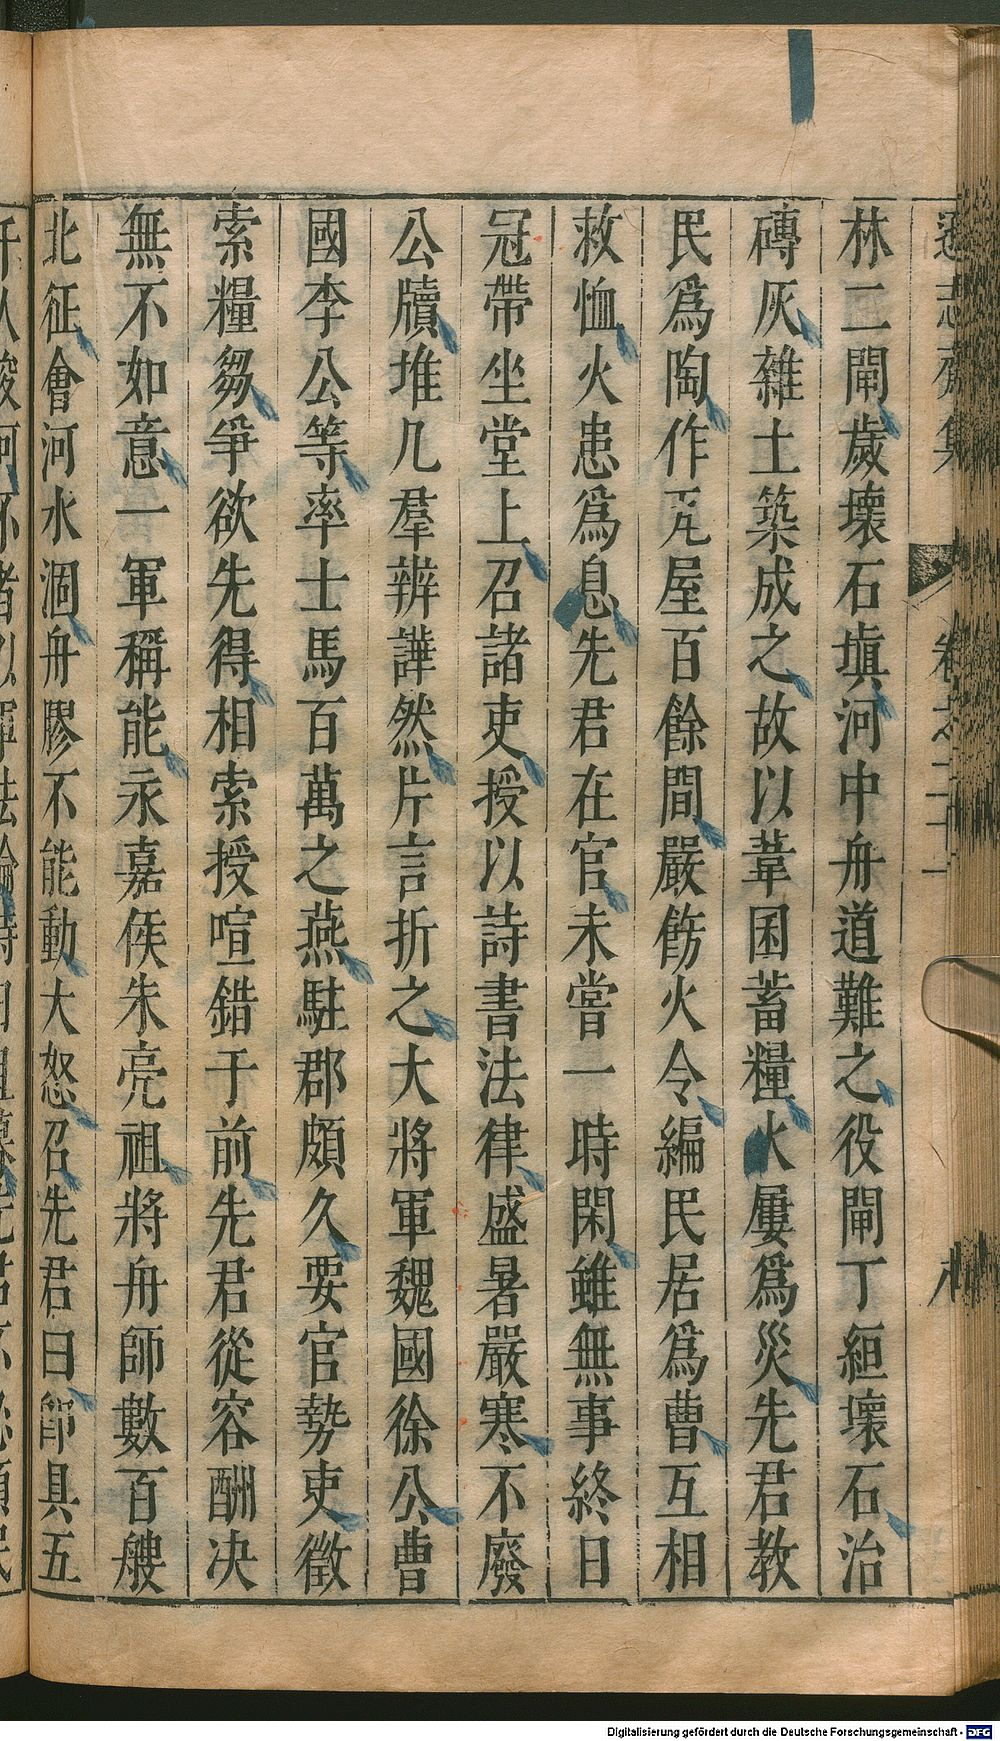 林二閘歲壞石塡河中舟道難之役閘丁絙壞石治
磚灰雜土築成之故以葦困蓄糧火屢爲災先君教
民爲陶作瓦屋百餘間嚴飭火令編民居爲曹互相
救恤火患爲息先君在官未嘗一時閑雖無事終日
冠帶坐堂上召諸吏授以詩書法律盛暑嚴寒不廢
公牘堆几羣辨譁然片言折之大將軍魏國徐公曹
國李公等率士馬百萬之燕駐郡頗久要官勢吏徵
索糧芻爭欲先得相索授喧錯于前先君從容酬决
無不如意一軍稱能永嘉侯朱亮祖將舟師數百艘
北征會河水涸舟膠不能動大怒召先君曰卽具五
Digitalisierung gefördert durch die Deutsche Forschungsgemeinschaft - DFG